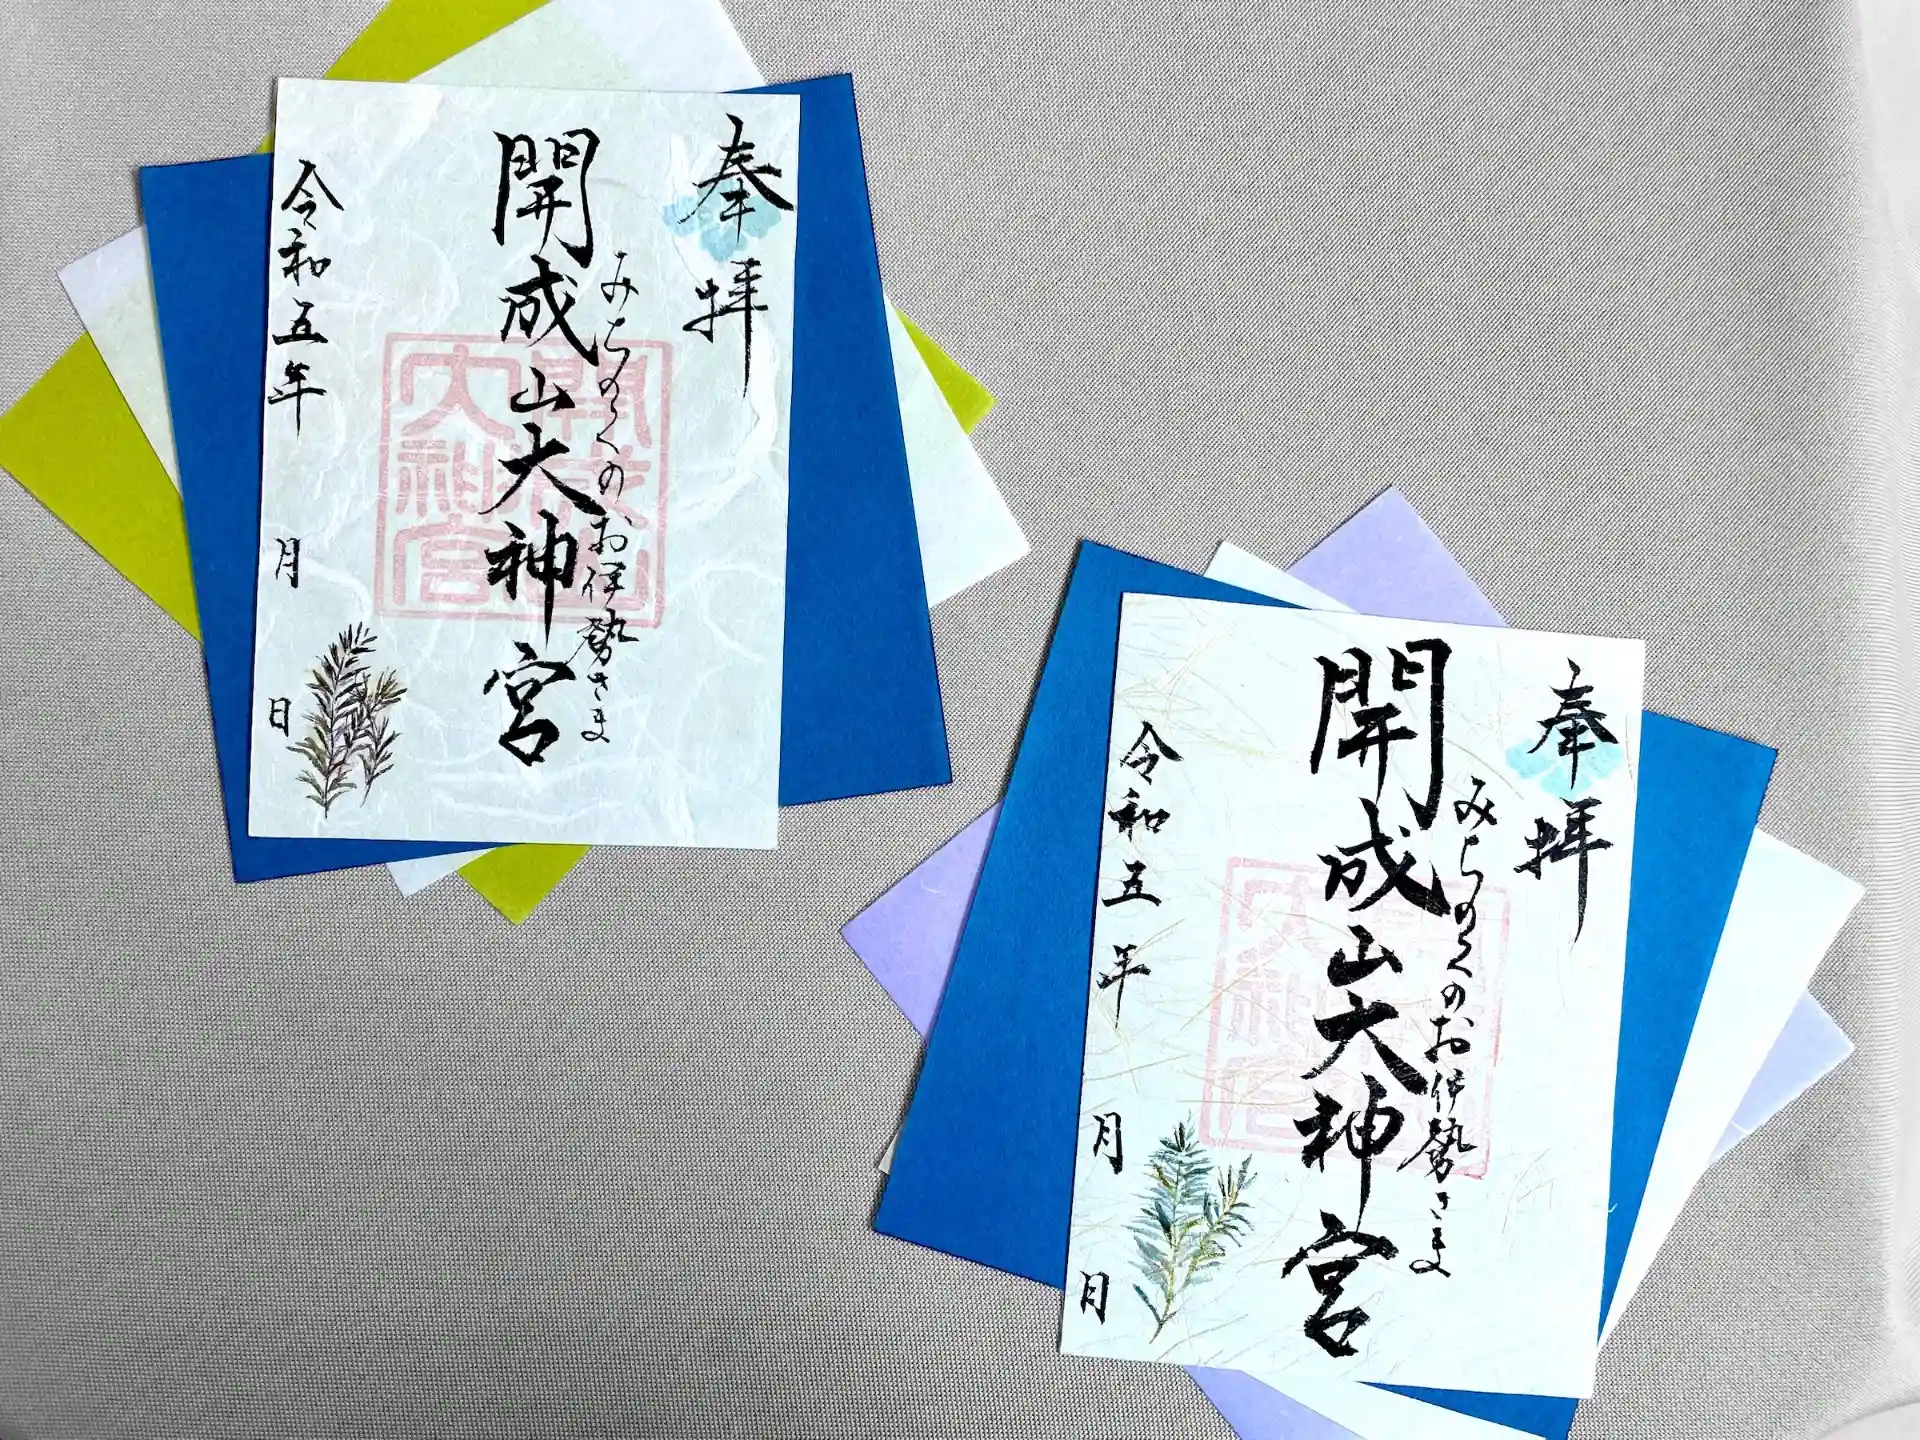 奉拝
みちのくのお伊勢さま
開成山大神宮
開成山
大神宮
令和五年 月 日
奉拝
みちのくのお伊勢さま
開成山大神宮
開成山
大神宮
令和五年 月 日